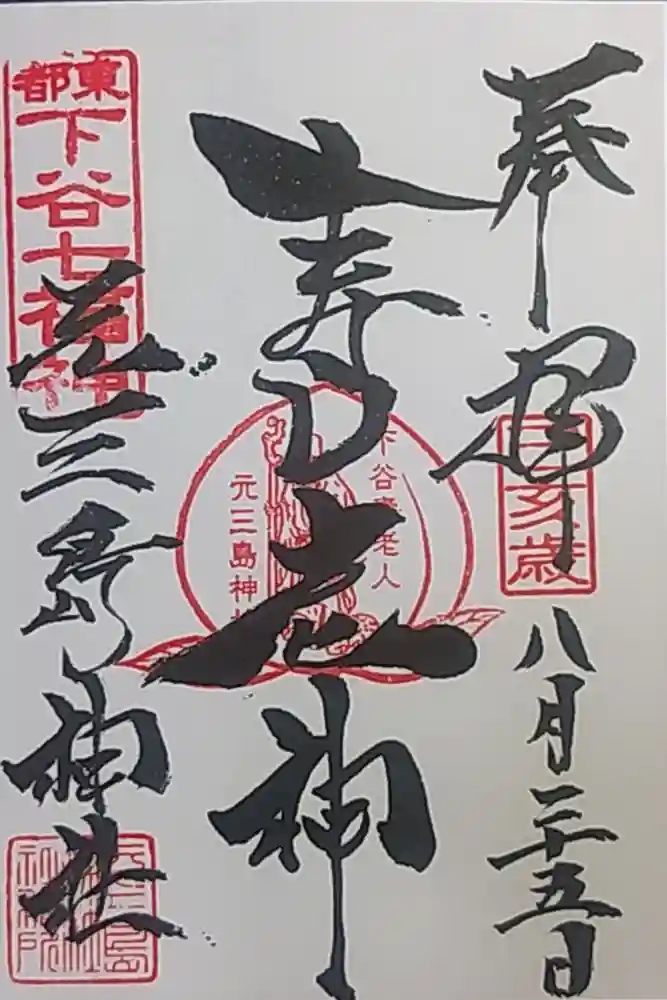 奉拝
己亥歳
八月二十五日
寿老神
下谷寿老人
元三島神社
東都
下谷七福神
元三島神社